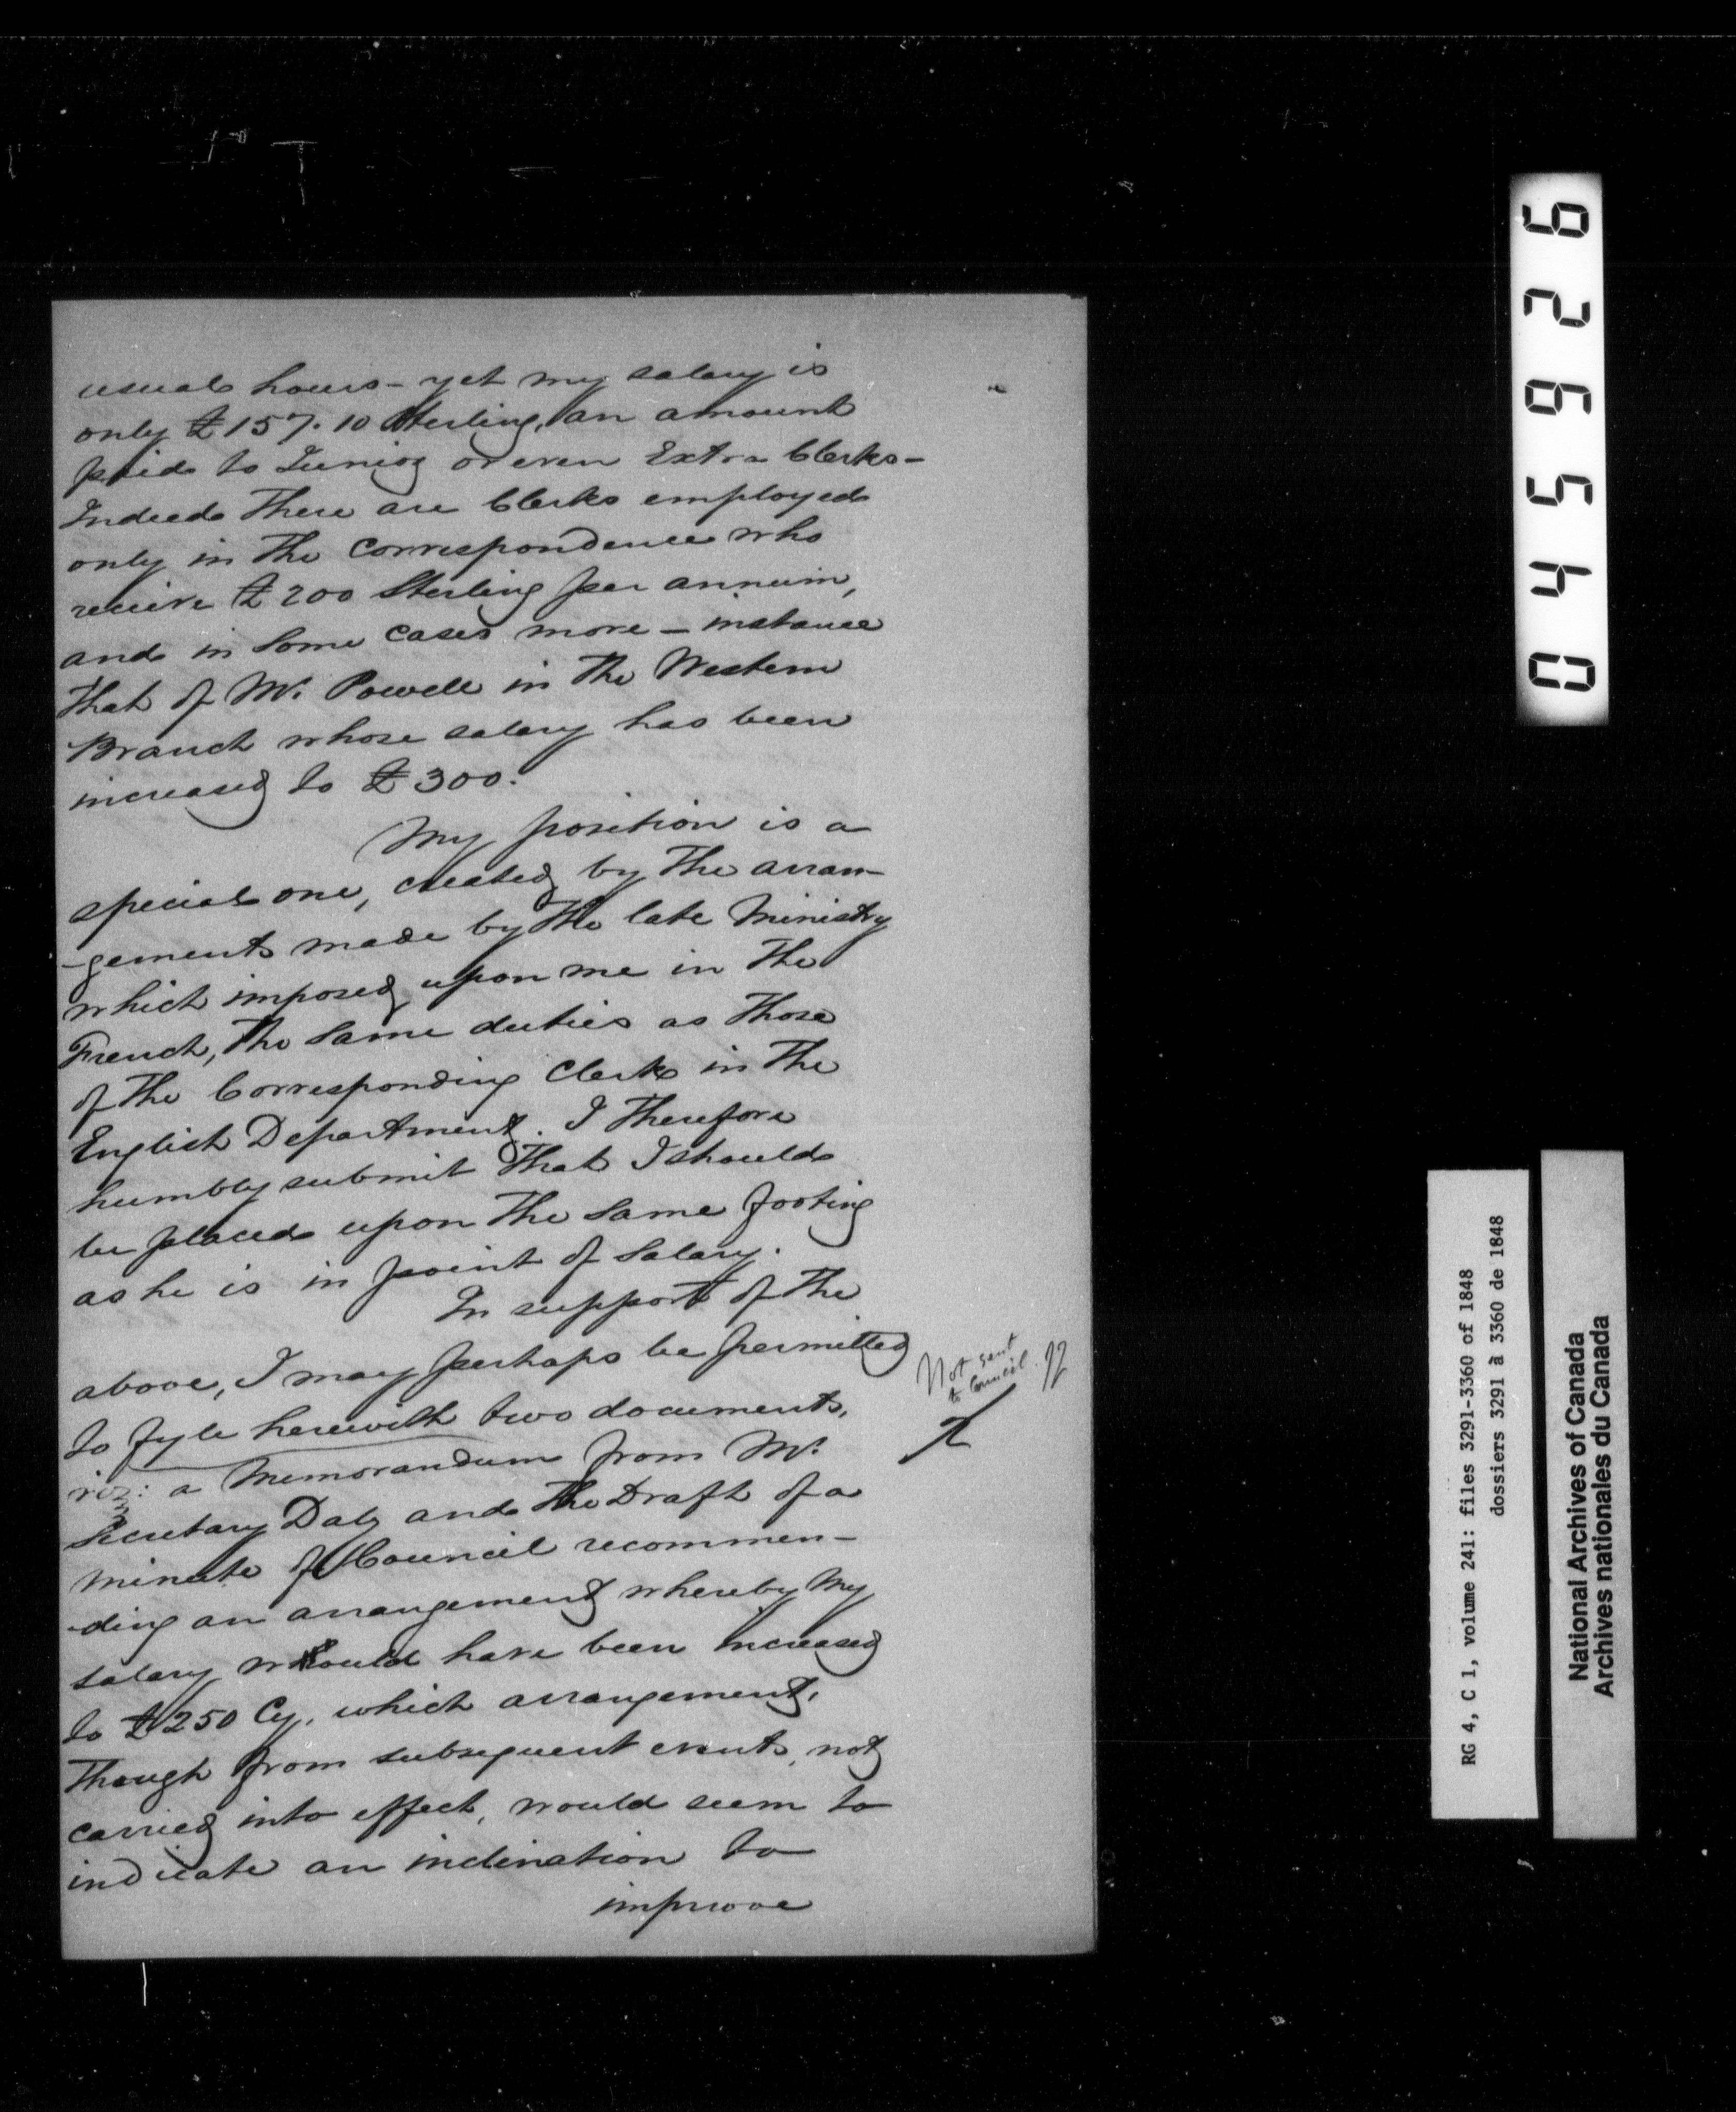 usual hours - yet my salary is
only £157.10 Sterling, an amount
paid to Junior or even Extra Clerks -
Indeed there are Clerks employed
only in the Correspondence who
receive £200 Sterling per annum,
and in some cases more - instance
that of Mr. Powell in the Western
Branch whose salary has been
increased to £300.
My position is a
special one, created by the arran-
-gements made by the late Ministry
which imposed upon me in the
French, the same duties as those
of the Corresponding Clerk in the
English Department. I therefore
humbly submit that I should
be placed upon the same footing
as he is in point of salary.
In support of the
above, I may perhaps be permitted
to fyle herewith two documents,
viz: a Memorandum from Mr.
Secretary Daly and the Draft of a
Minute of Council recommen-
-ding an arrangement whereby my
salary would have been increased
to £250 Cy. which arrangement,
though from subsequent events, not
carried into effect, would seem to
indicate an inclination to
improve
Not sent
to Council.
045926
RG 4, C 1, volume 241: files 3291-3360 of 1848
dossiers 3291 à 3360 de 1848
National Archives of Canada
Archives nationales du Canada